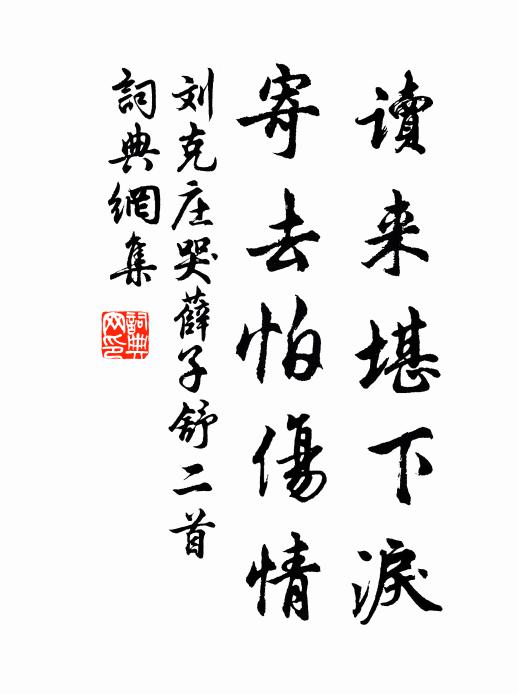 讀来堪下淚
寄去怕傷情
刘克庄哭薛子舒二首
詞典網集
詞典网印